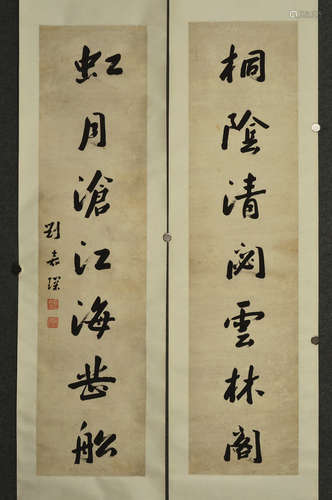 桐陰清閟雲林閣
虹月滄江海岳船
劉嘉琛